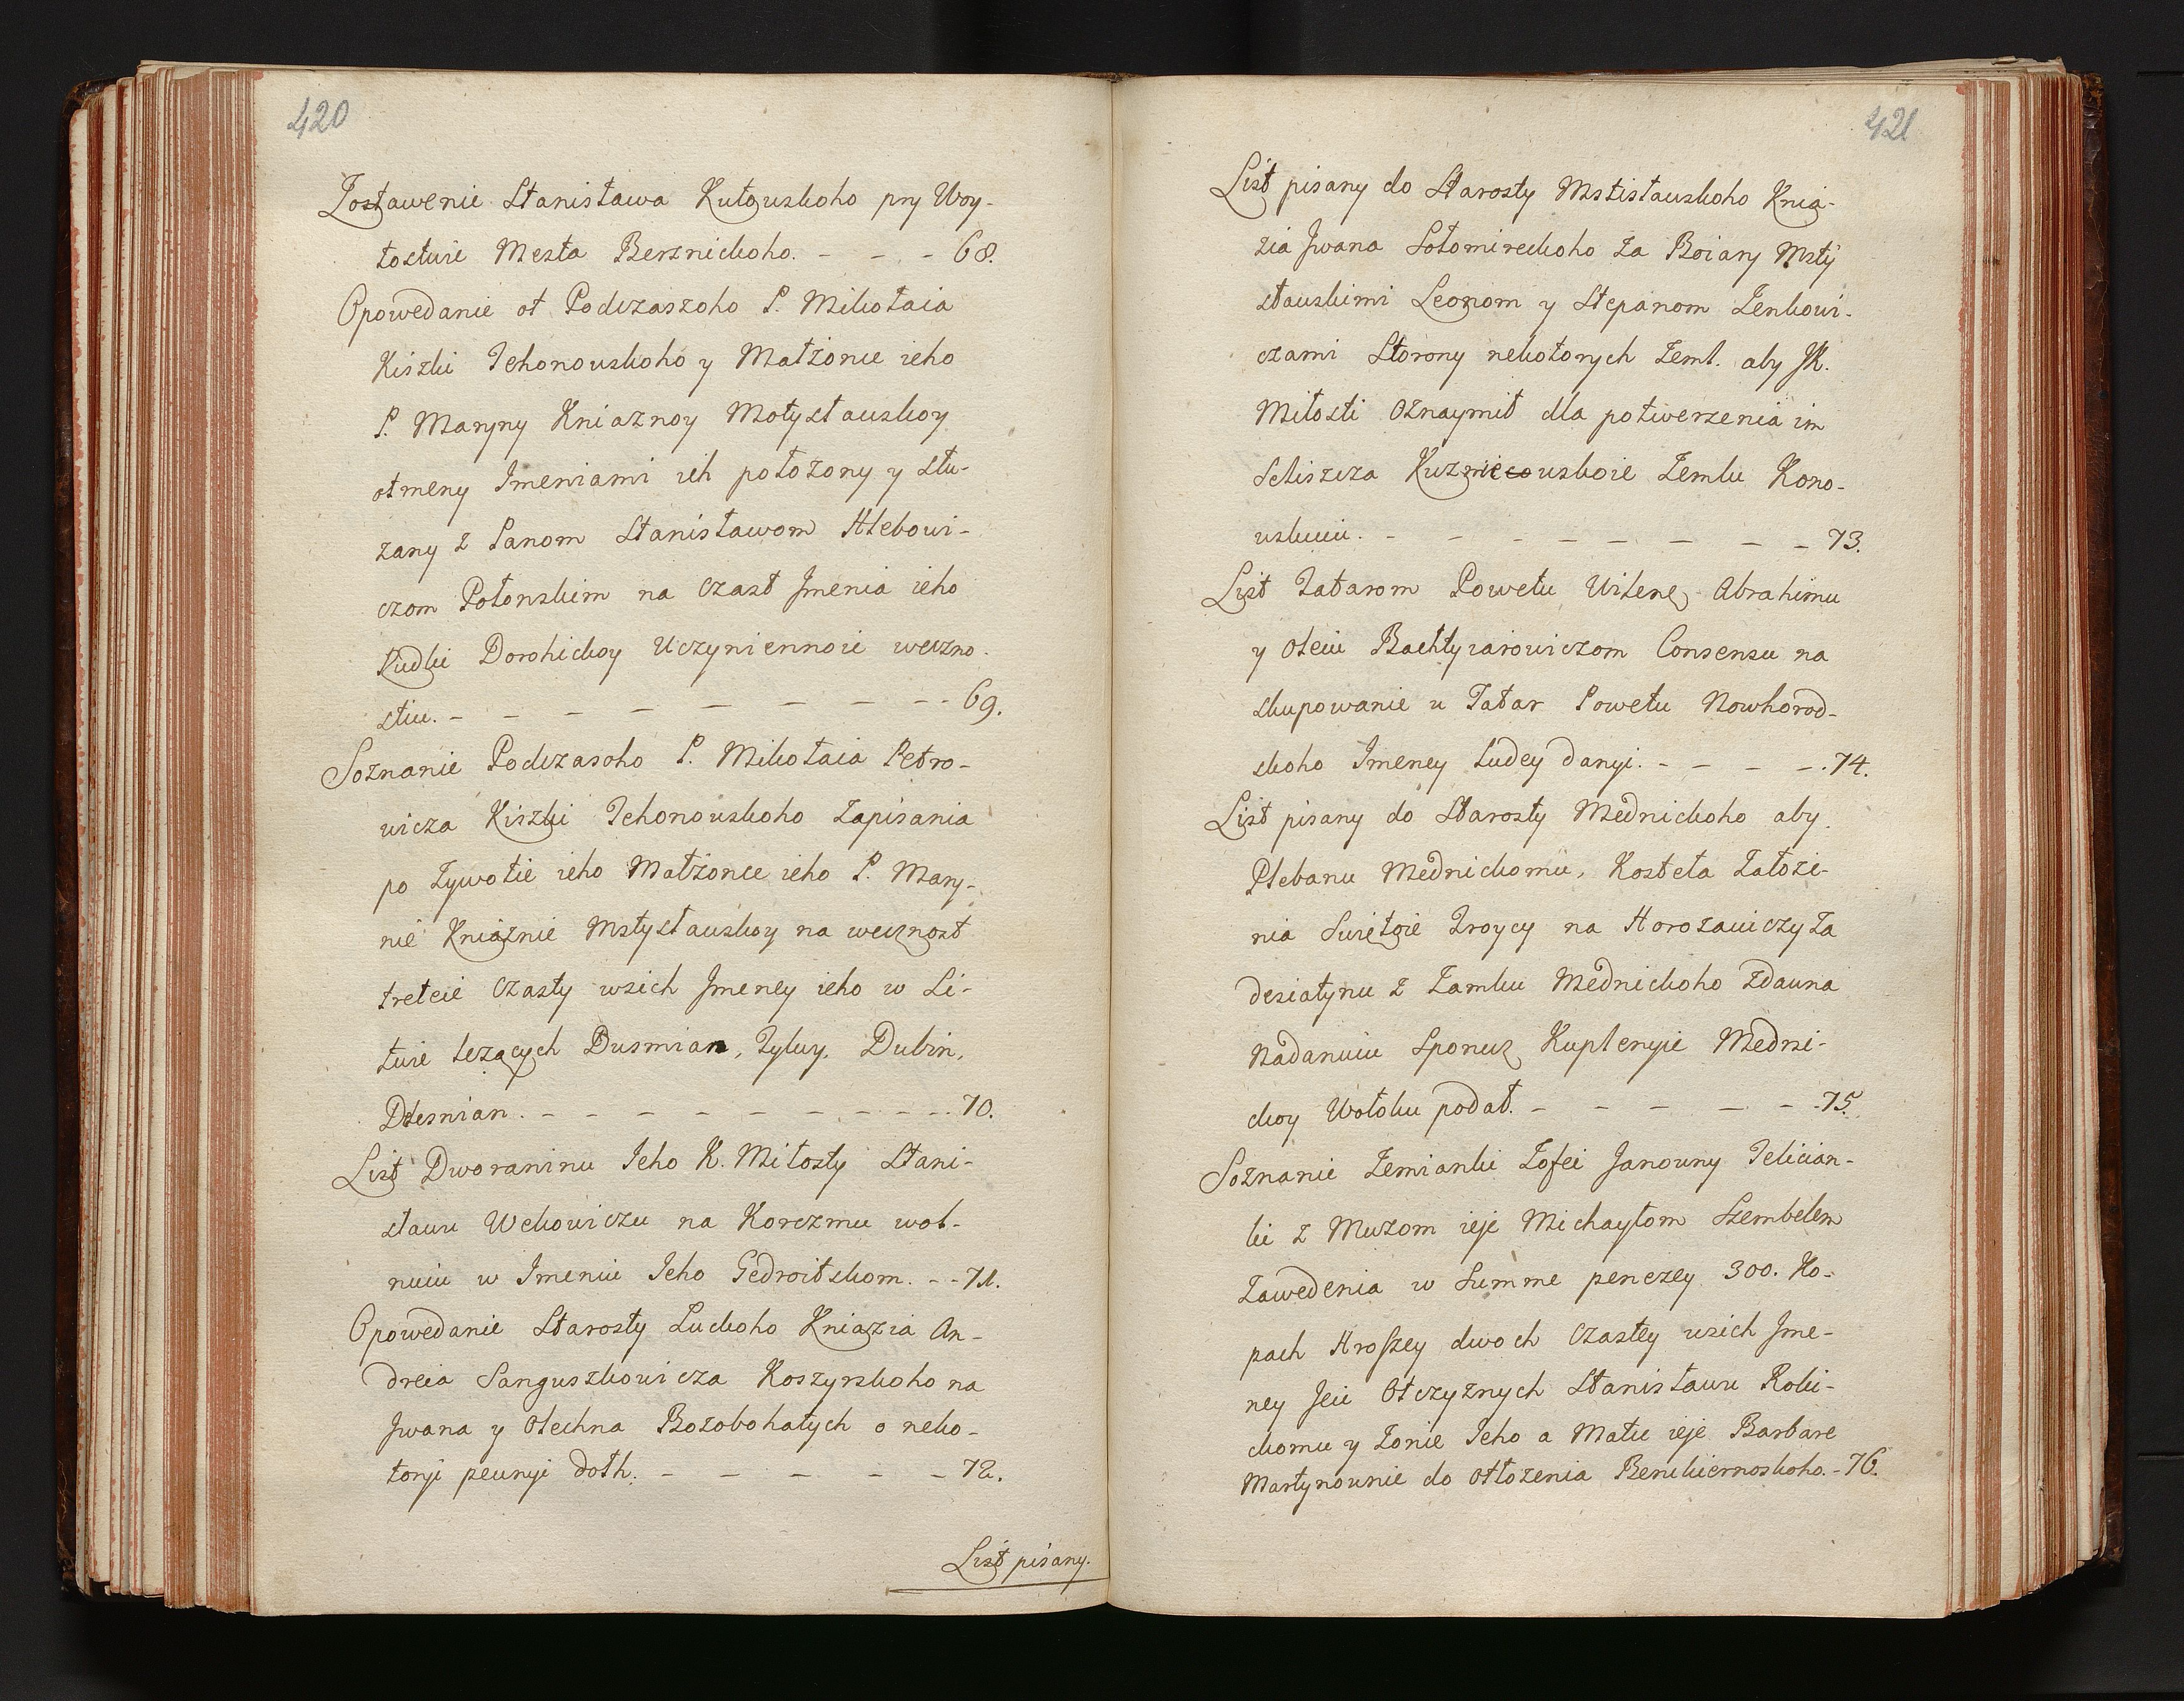 420
Zostawenie Stanisława Kułowskoho pry Woy-
tostwie Mesta Berznickoho. - - - 68.
Opowedanie ot Podczaszoho P. Mikołaia
Kiszki Tehonowskoho y Małżonce ieho
P. Maryny Kniaznoy Motysławskoy
otmeny Imeniami ich położony y słu-
zany z Panom Stanisławom Hlebowi-
czom Połonskim na Czast Jmenia ieho
Kudki Dorohickoy Uczyniennoie weczno-
stiu. - - - - - - - - - 69.
Soznanie Podczasoho P. Mikołaia Petro-
wicza Kiszki Tehonowskoho Zapisania
po Zywotie ieho Małżonce ieho P. Mary-
nie Kniaznie Mstysławskoy na wecznost
tretcie Czasty wsich Jmeney ieho w Li-
twie lezących Dusmian, Zyluy, Dubin,
Dzesnian. - - - - - - - - - 70.
List Dworaninu Jeho K. Miłosty Stani-
sławu Wekowiczu na Korczmu wol-
nuiu w Imeniu Jeho Gedroitskom. - - 71.
Opowedanie Starosty Łuckoho Kniazia An-
dreia Sanguszkowicza Koszyrskoho na
Jwana y Olechna Bozobohatych o neko-
toryi pewnyi dołh. - - - - - 72.
List pisany.
421
List pisany do Starosty Mstisławskoho Knia-
zia Jwana Sołomireckoho za Boiary Msty
sławskimi Leonom y Stepanom Zenkowi-
czami Storony nekotorych Zeml. aby JK.
Miłosti Oznaymił dla potwerzenia im
Seliszcza Kuzniecowskoie Zemlu Kono-
wskuiu. - - - - - - - - 73.
List Tatarom Powetu Wilene, Abrahimu
y Oleiu Bachtyiarowiczom Consensu na
skupowanie u Tatar Powetu Nowhorod-
skoho Imeney Ludey danyi. - - - - 74.
List pisany do Starosty Mednickoho aby
Plebanu Mednickomu, Kosteła Założe-
nia Swiętoie Troycy na Horozawiczy Za
desiatynu z Zamku Mednickoho Zdawna
Nadanuiu Sponuz Kuplenyie Medni-
ckoy Wołoku podał. - - - - - 75.
Soznanie Zemianki Zofei Janowny Felician-
ki z Muzom ieje Michayłom Szembelem
Zawedenia w Summe penezey 300. Ko-
pach Hroszey dwoch Czastey wsich Jme-
ney Jeie Otczyznych Stanisławu Roki-
ckomu y Zonie Jeho a Matce ieje Barbare
Martynownie do otłozenia Benikiernoskoho. - 76.